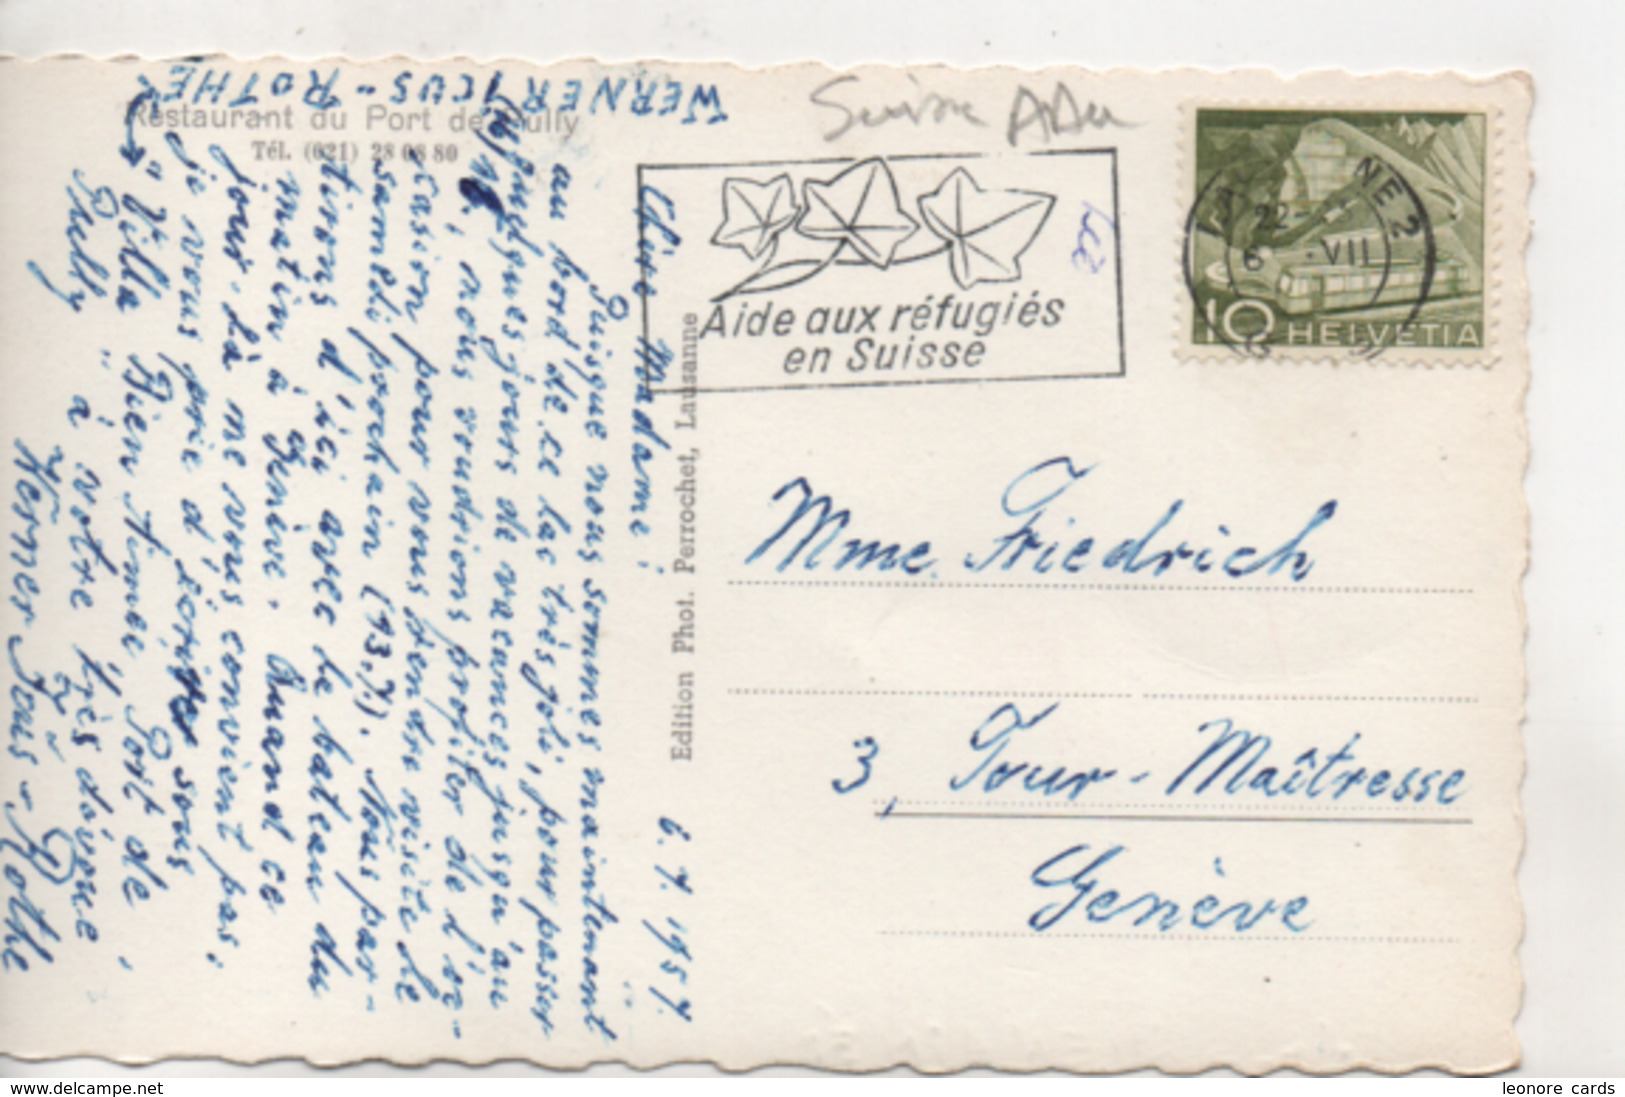 Restaurant du Port de Pully
Tél. (021) 28 06 80
WERNER ICUS-ROTHE
Suisse
Aide aux réfugiés
en Suisse
22
6 VII
NE 2
10 HELVETIA
6.7.1957
Chère Madame,
Puisque nous sommes maintenant
au bord de ce lac très joli, pour passer
quelques jours de vacances jusqu'au
nous voudrions profiter de l'oc-
casion pour vous rendre visite le
samedi prochain (13.7). Nous par-
tirons d'ici avec le bateau du
matin à Genève. Quand ce
jour-là ne vous convient pas,
je vous prie d'écrire sous
"Villa Bien Aimée", Port de
Pully" à votre très dévoué
Werner Icus-Rothe
Edition Phot. Perrochet, Lausanne
Mme. Friedrich
3, Tour-Maîtresse
Genève
www.delcampe.net
leonore cards